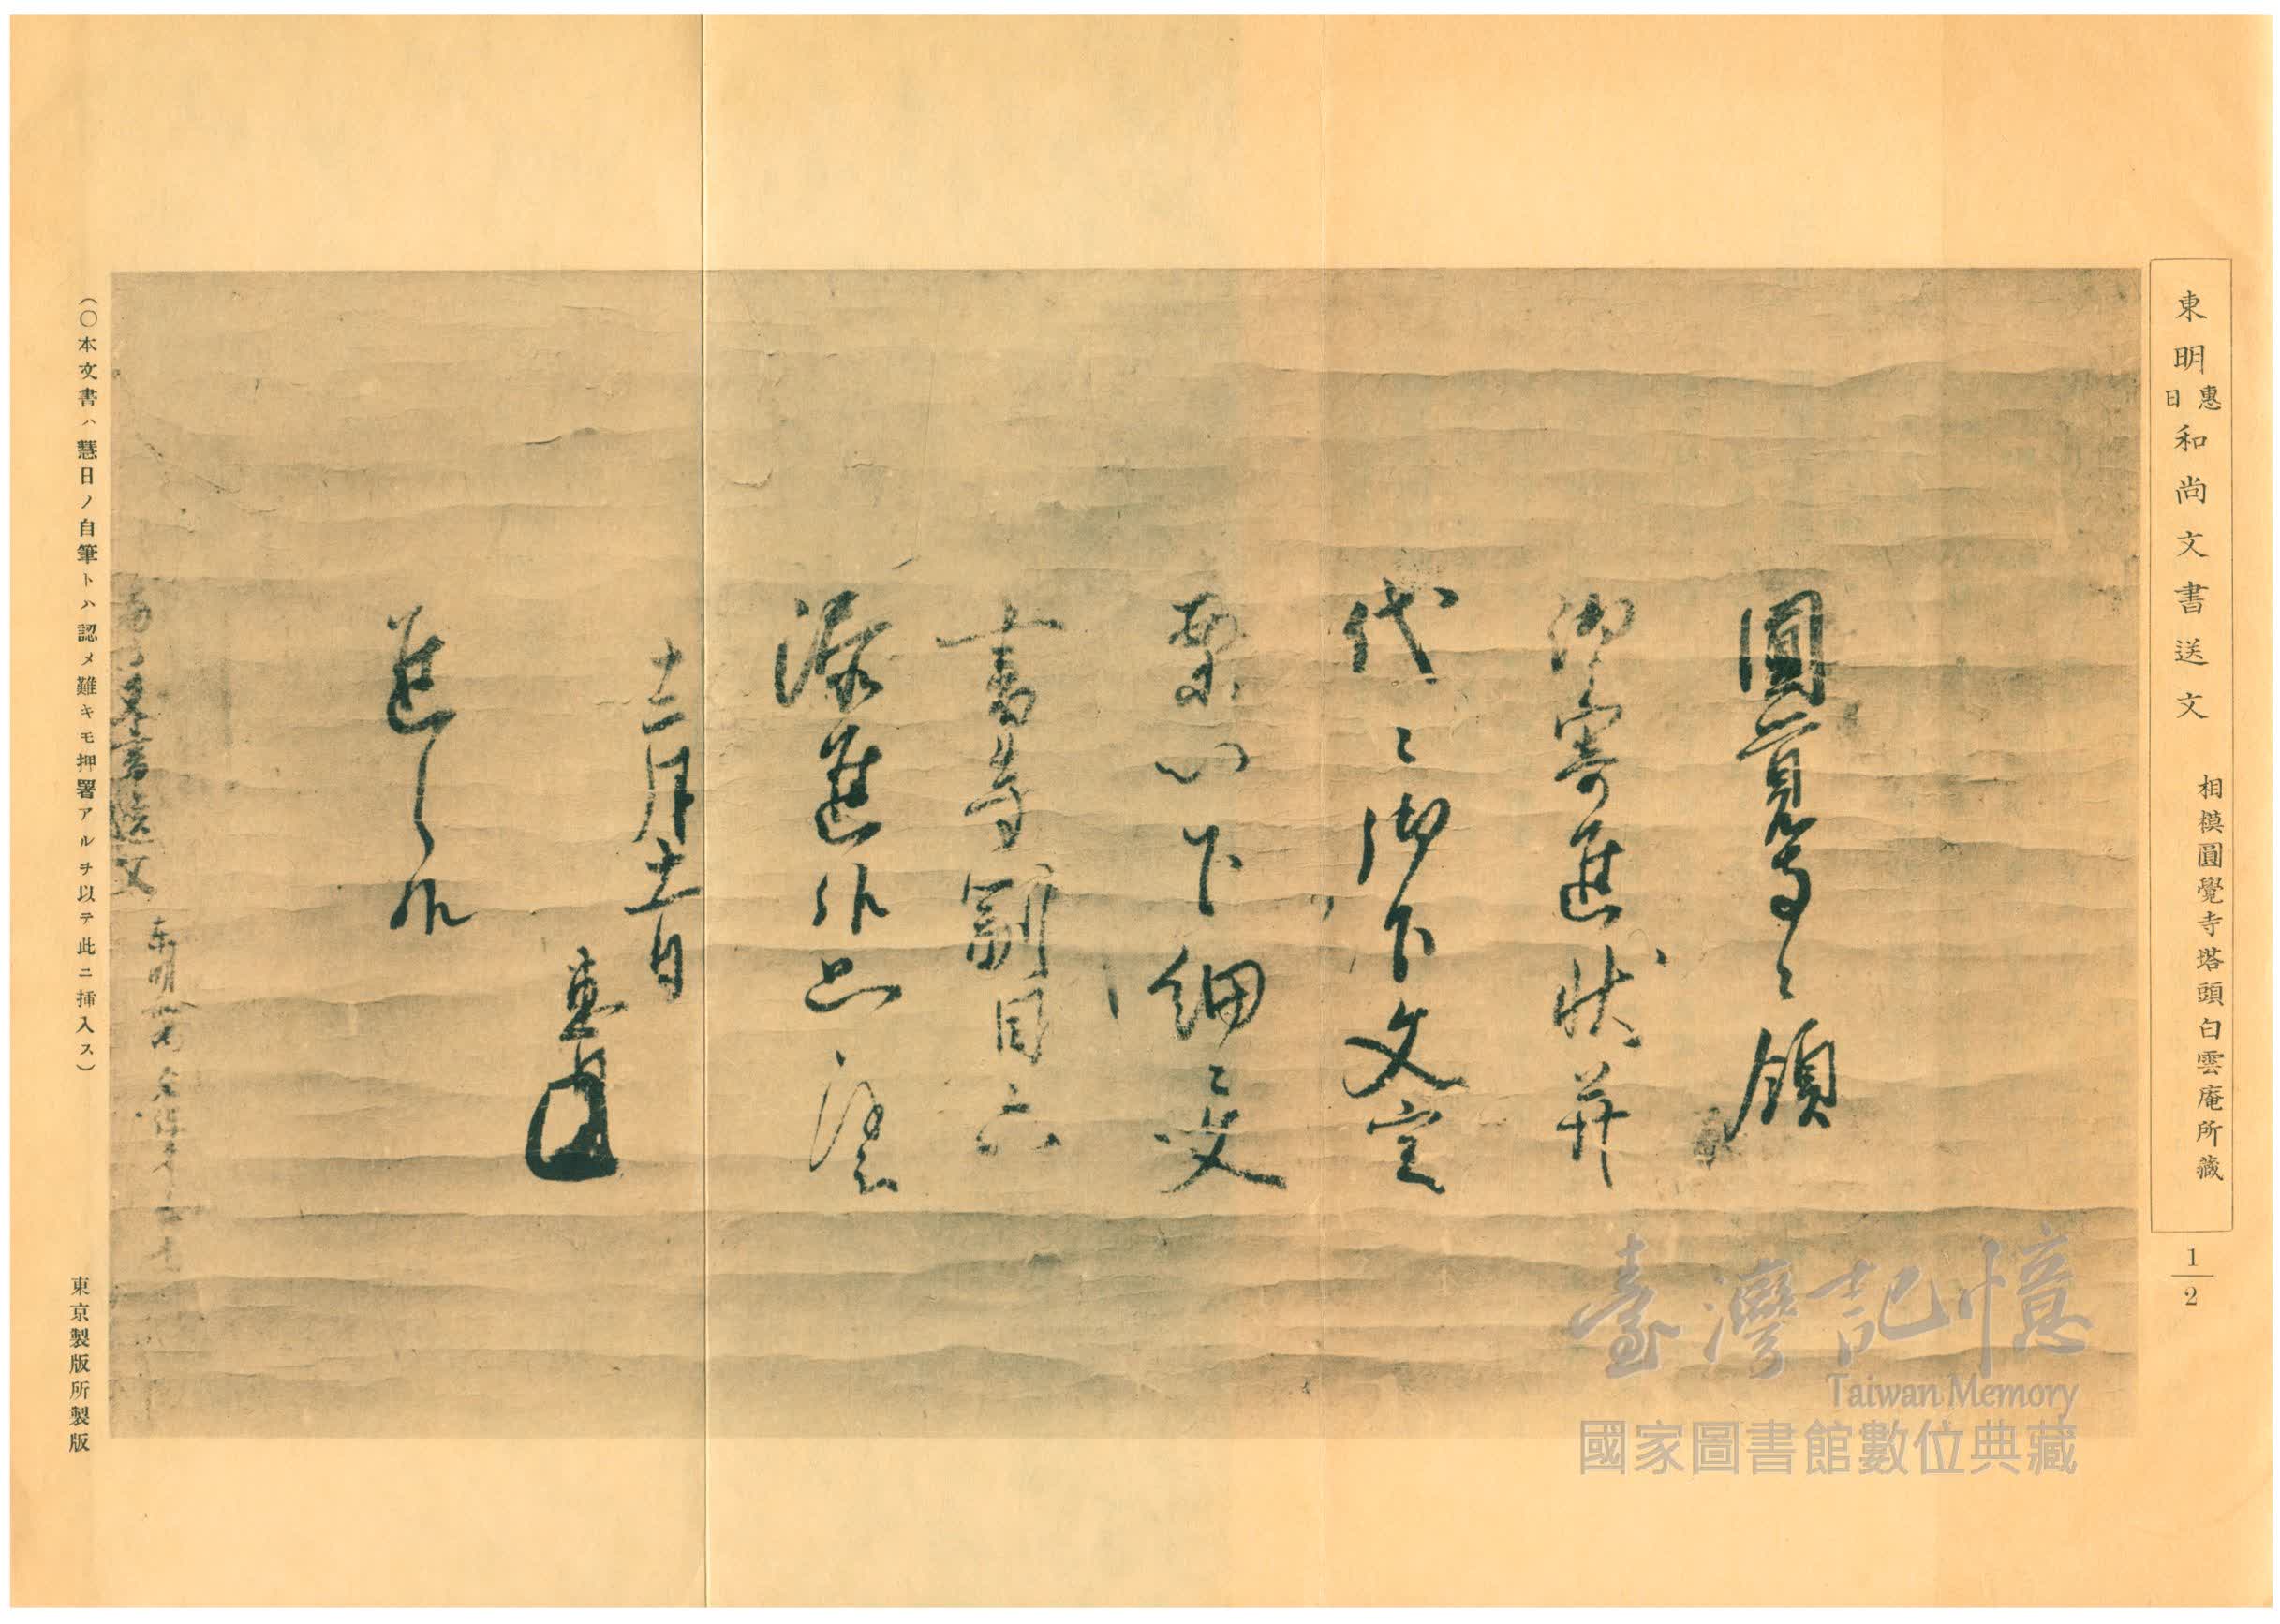 東明惠日和尚文書送文　相模圓覺寺塔頭白雲庵所藏
1/2
圓覺寺々領
御寄進狀幷
代々御下文宣
案以下細々文
書等副目六
渡進候
十二月十一日
惠日
進之候
文書送文
東明和尚
（〇本文書ハ慧日ノ自筆トハ認メ難キモ押署アルヲ以テ此ニ揷入ス）
東京製版所製版
臺灣記憶
Taiwan Memory
國家圖書館數位典藏